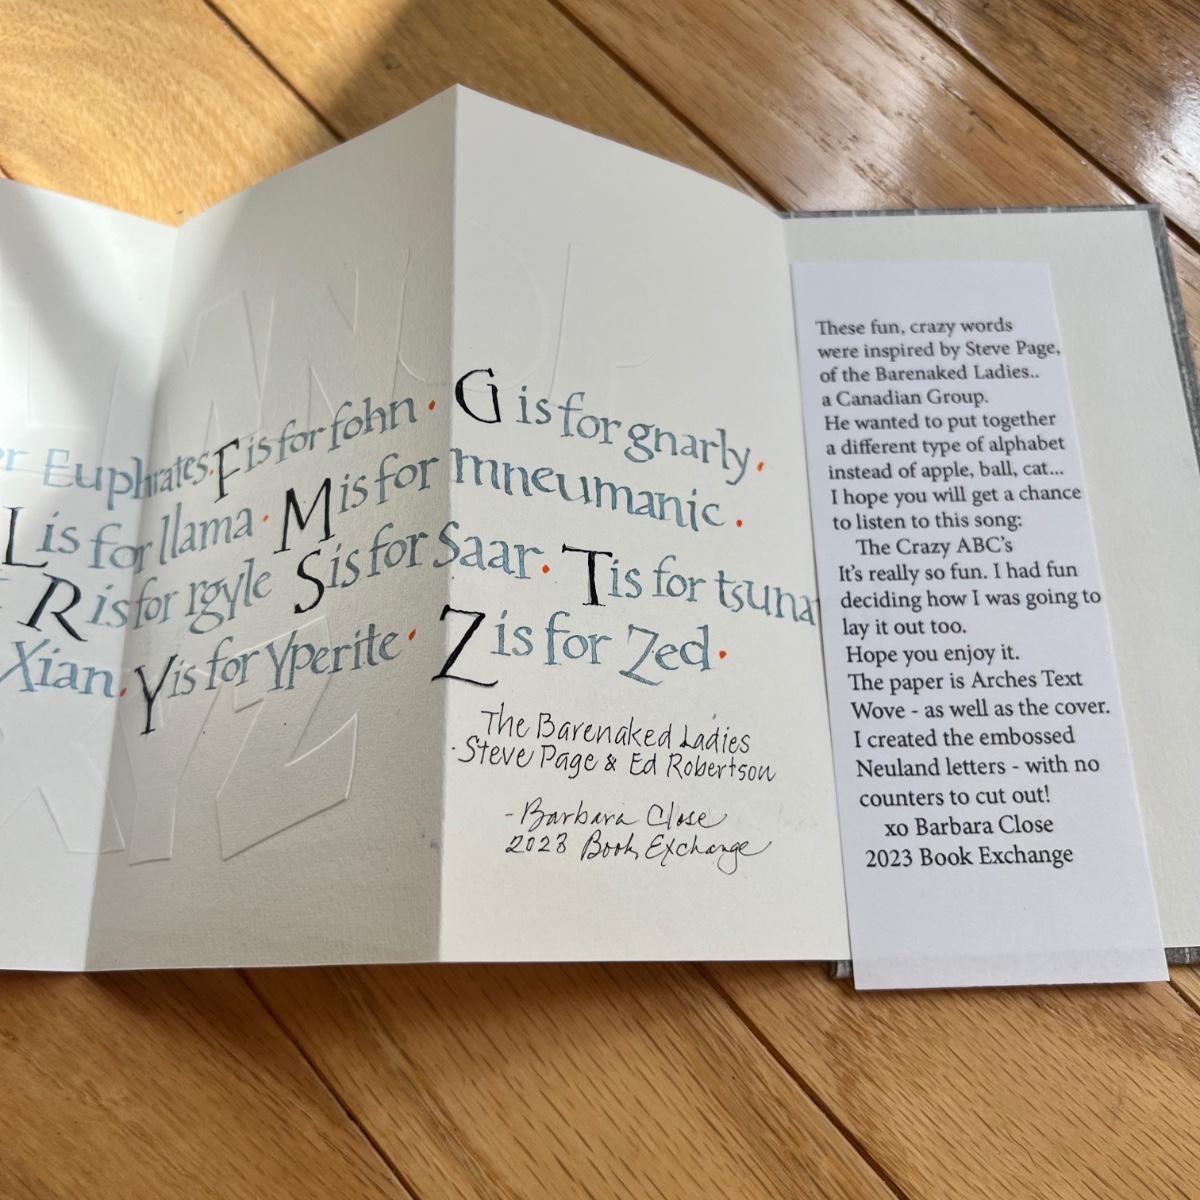 Euphrates. F is for fohn · G is for gnarly.
L is for llama · M is for mneumanic.
R is for rgyle S is for Saar. T is for tsuna
Xian. Y is for Yperite · Z is for Zed.
The Barenaked Ladies
Steve Page & Ed Robertson
- Barbara Close
2023 Book Exchange
These fun, crazy words
were inspired by Steve Page,
of the Barenaked Ladies..
a Canadian Group.
He wanted to put together
a different type of alphabet
instead of apple, ball, cat...
I hope you will get a chance
to listen to this song:
The Crazy ABC's
It's really so fun. I had fun
deciding how I was going to
lay it out too.
Hope you enjoy it.
The paper is Arches Text
Wove - as well as the cover.
I created the embossed
Neuland letters - with no
counters to cut out!
xo Barbara Close
2023 Book Exchange